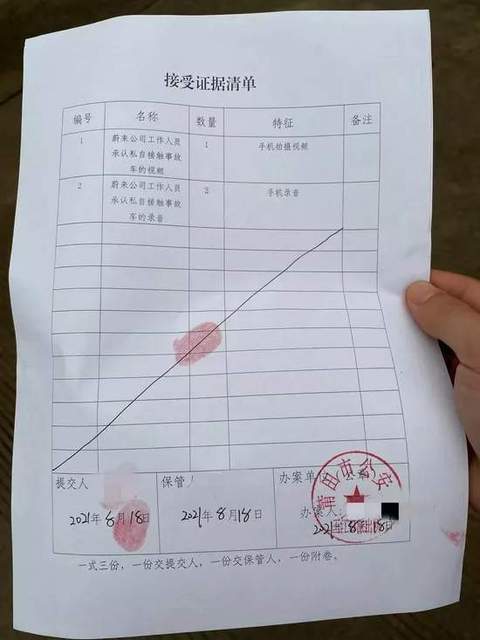 接受证据清单
编号 名称 数量 特征 备注
1 蔚来公司工作人员 1 手机拍摄视频
承认私自接触事故
车的视频
2 蔚来公司工作人员 2 手机录音
承认私自接触事故
车的录音
提交人 保管人 办案单位
莆田市公安
办案人
2021年8月18日 2021年8月18日 2021年8月18日
一式三份，一份交提交人，一份交保管人，一份附卷。